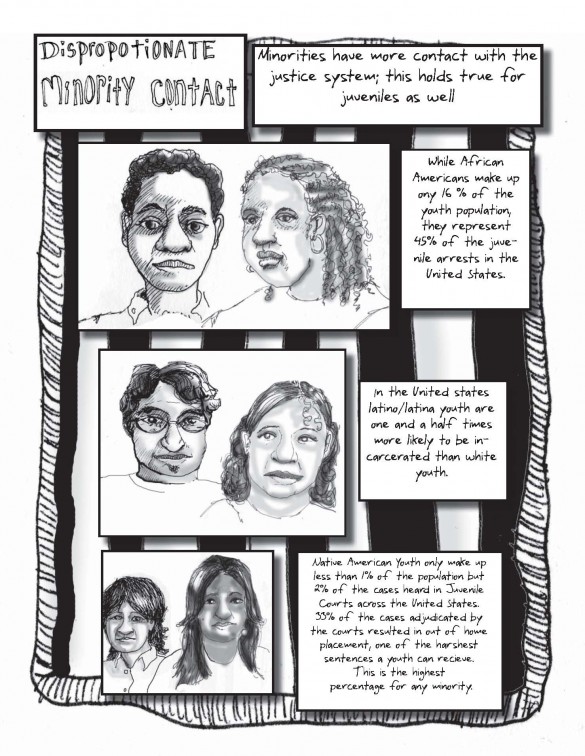 DISPROPOTIONATE
MINORITY CONTACT
Minorities have more contact with the
justice system; this holds true for
juveniles as well
While African
Americans make up
ony 16 % of the
youth population,
they represent
45% of the juve-
nile arrests in the
United States.
In the United states
latino/latina youth are
one and a half times
more likely to be in-
carcerated than white
youth.
Native American Youth only make up
less than 1% of the population but
2% of the cases heard in Juvenile
Courts across the United States.
33% of the cases adjudicated by
the courts resulted in out of home
placement, one of the harshest
sentences a youth can recieve.
This is the highest
percentage for any minority.